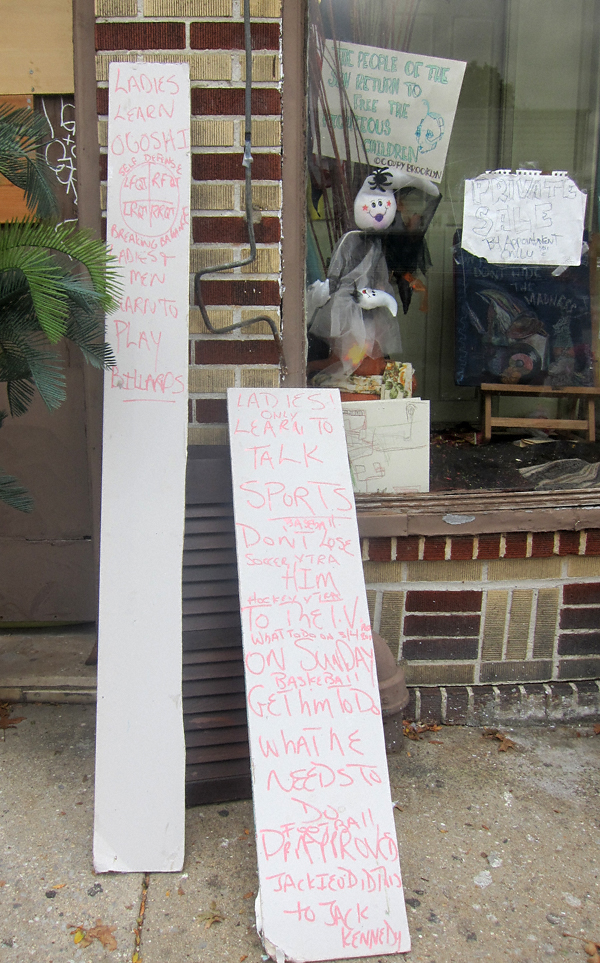 LADIES
LEARN
OGOSHI
SELF DEFENSE
BREAKING BALANCE
LADIES &
MEN
LEARN TO
PLAY
BILLIARDS
LADIES!
ONLY
LEARN TO
TALK
SPORTS
BASEBALL
DON'T LOSE
SOCCER XTRA
HIM
HOCKEY XTRA
TO THE T.V
WHAT TO DO ON 3/4
ON SUNDAY
BASKEBALL
GET him To Do
whAT he
NEEDS TO
DO
FOOTBALL
DR APPROVED
JACKIE O DID THIS
to JACK
KENNEDY
THE PEOPLE OF THE
SUN RETURN TO
FREE THE
CONSCIOUS
CHILDREN
©CCUPY BROOKLYN
PRIVATE
SALE
By APPOINTMENT
ONLY!!
DON'T HIDE
THE
MADNESS